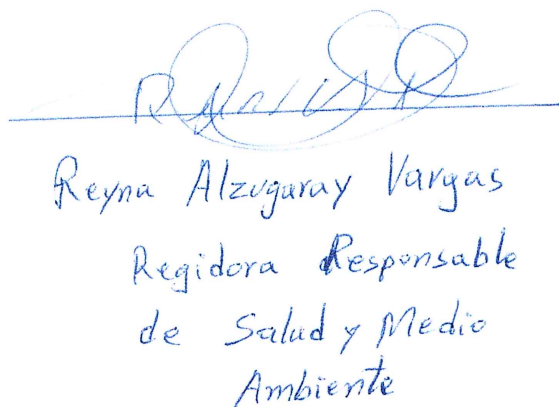 Reyna Alzugaray Vargas
Regidora Responsable
de Salud y Medio
Ambiente